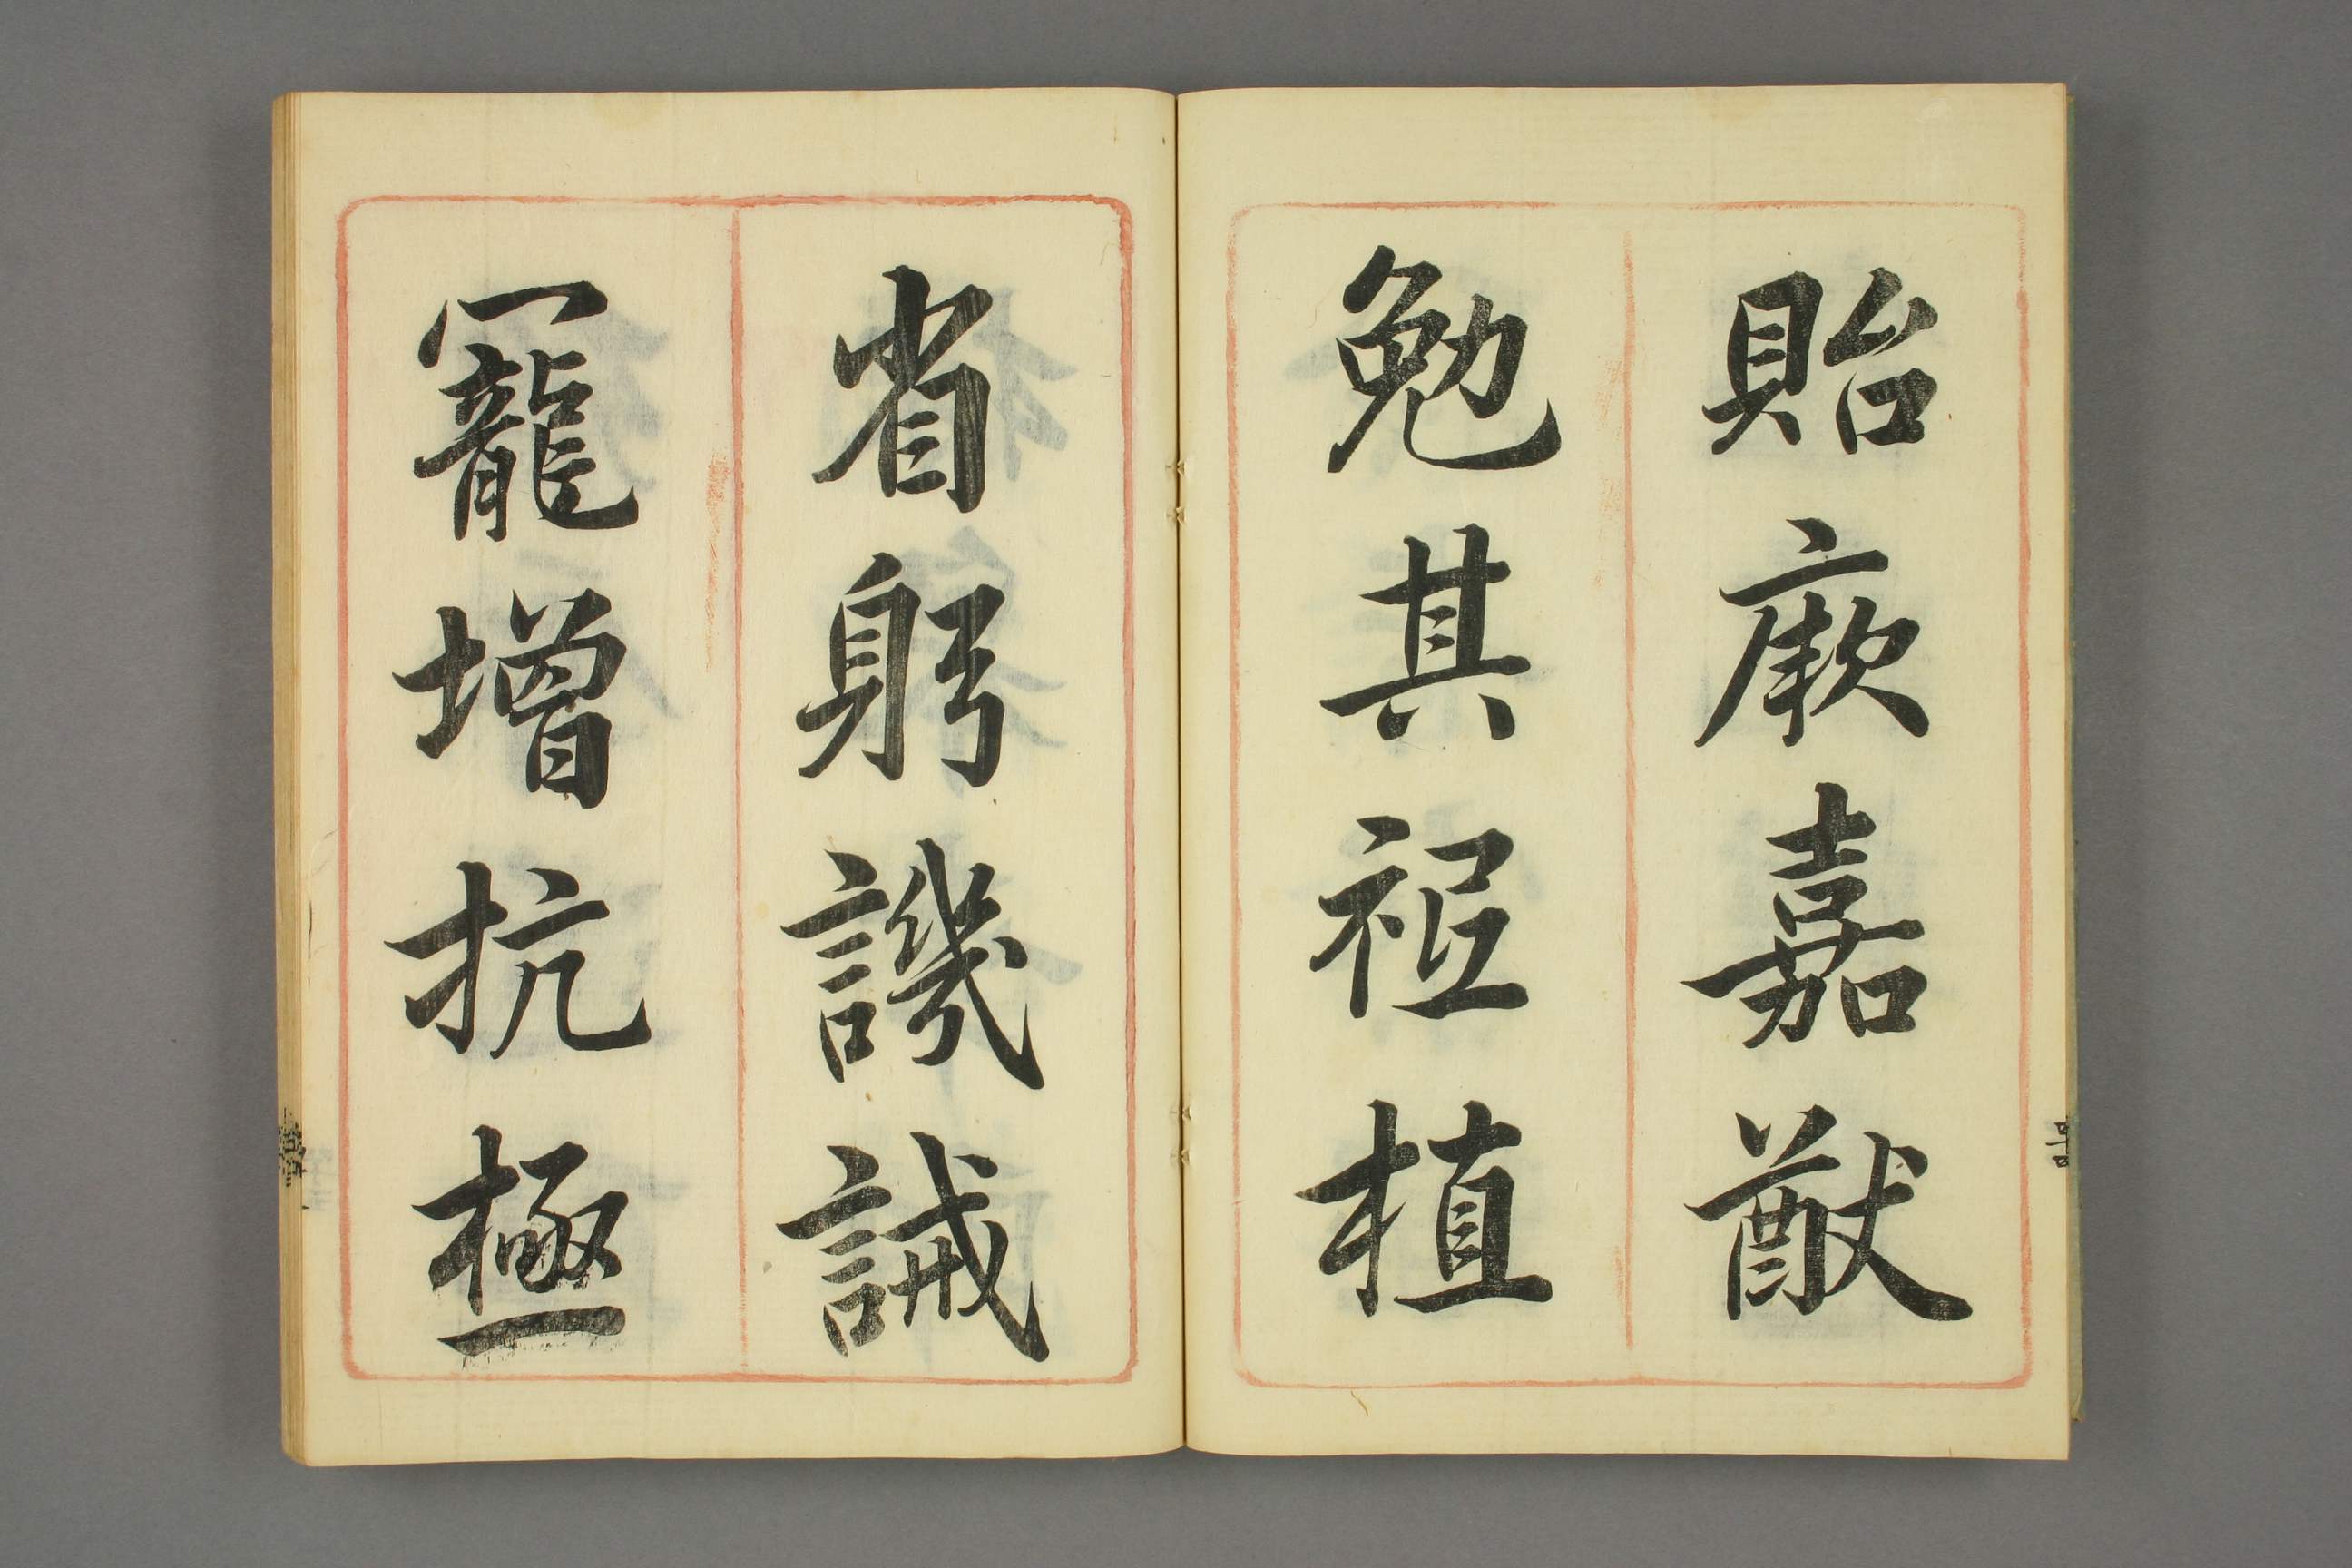 貽厥嘉猷
勉其祗植
省躬譏誡
寵增抗極